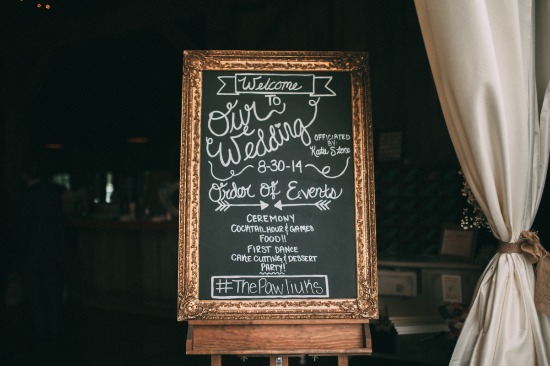 Welcome
TO
Our
Wedding
OFFICIATED
BY:
Katie Stone
8-30-14
Order Of Events
CEREMONY
COCKTAIL HOUR & GAMES
FOOD!!
FIRST DANCE
CAKE CUTTING & DESSERT
PARTY!
#ThePawliuks